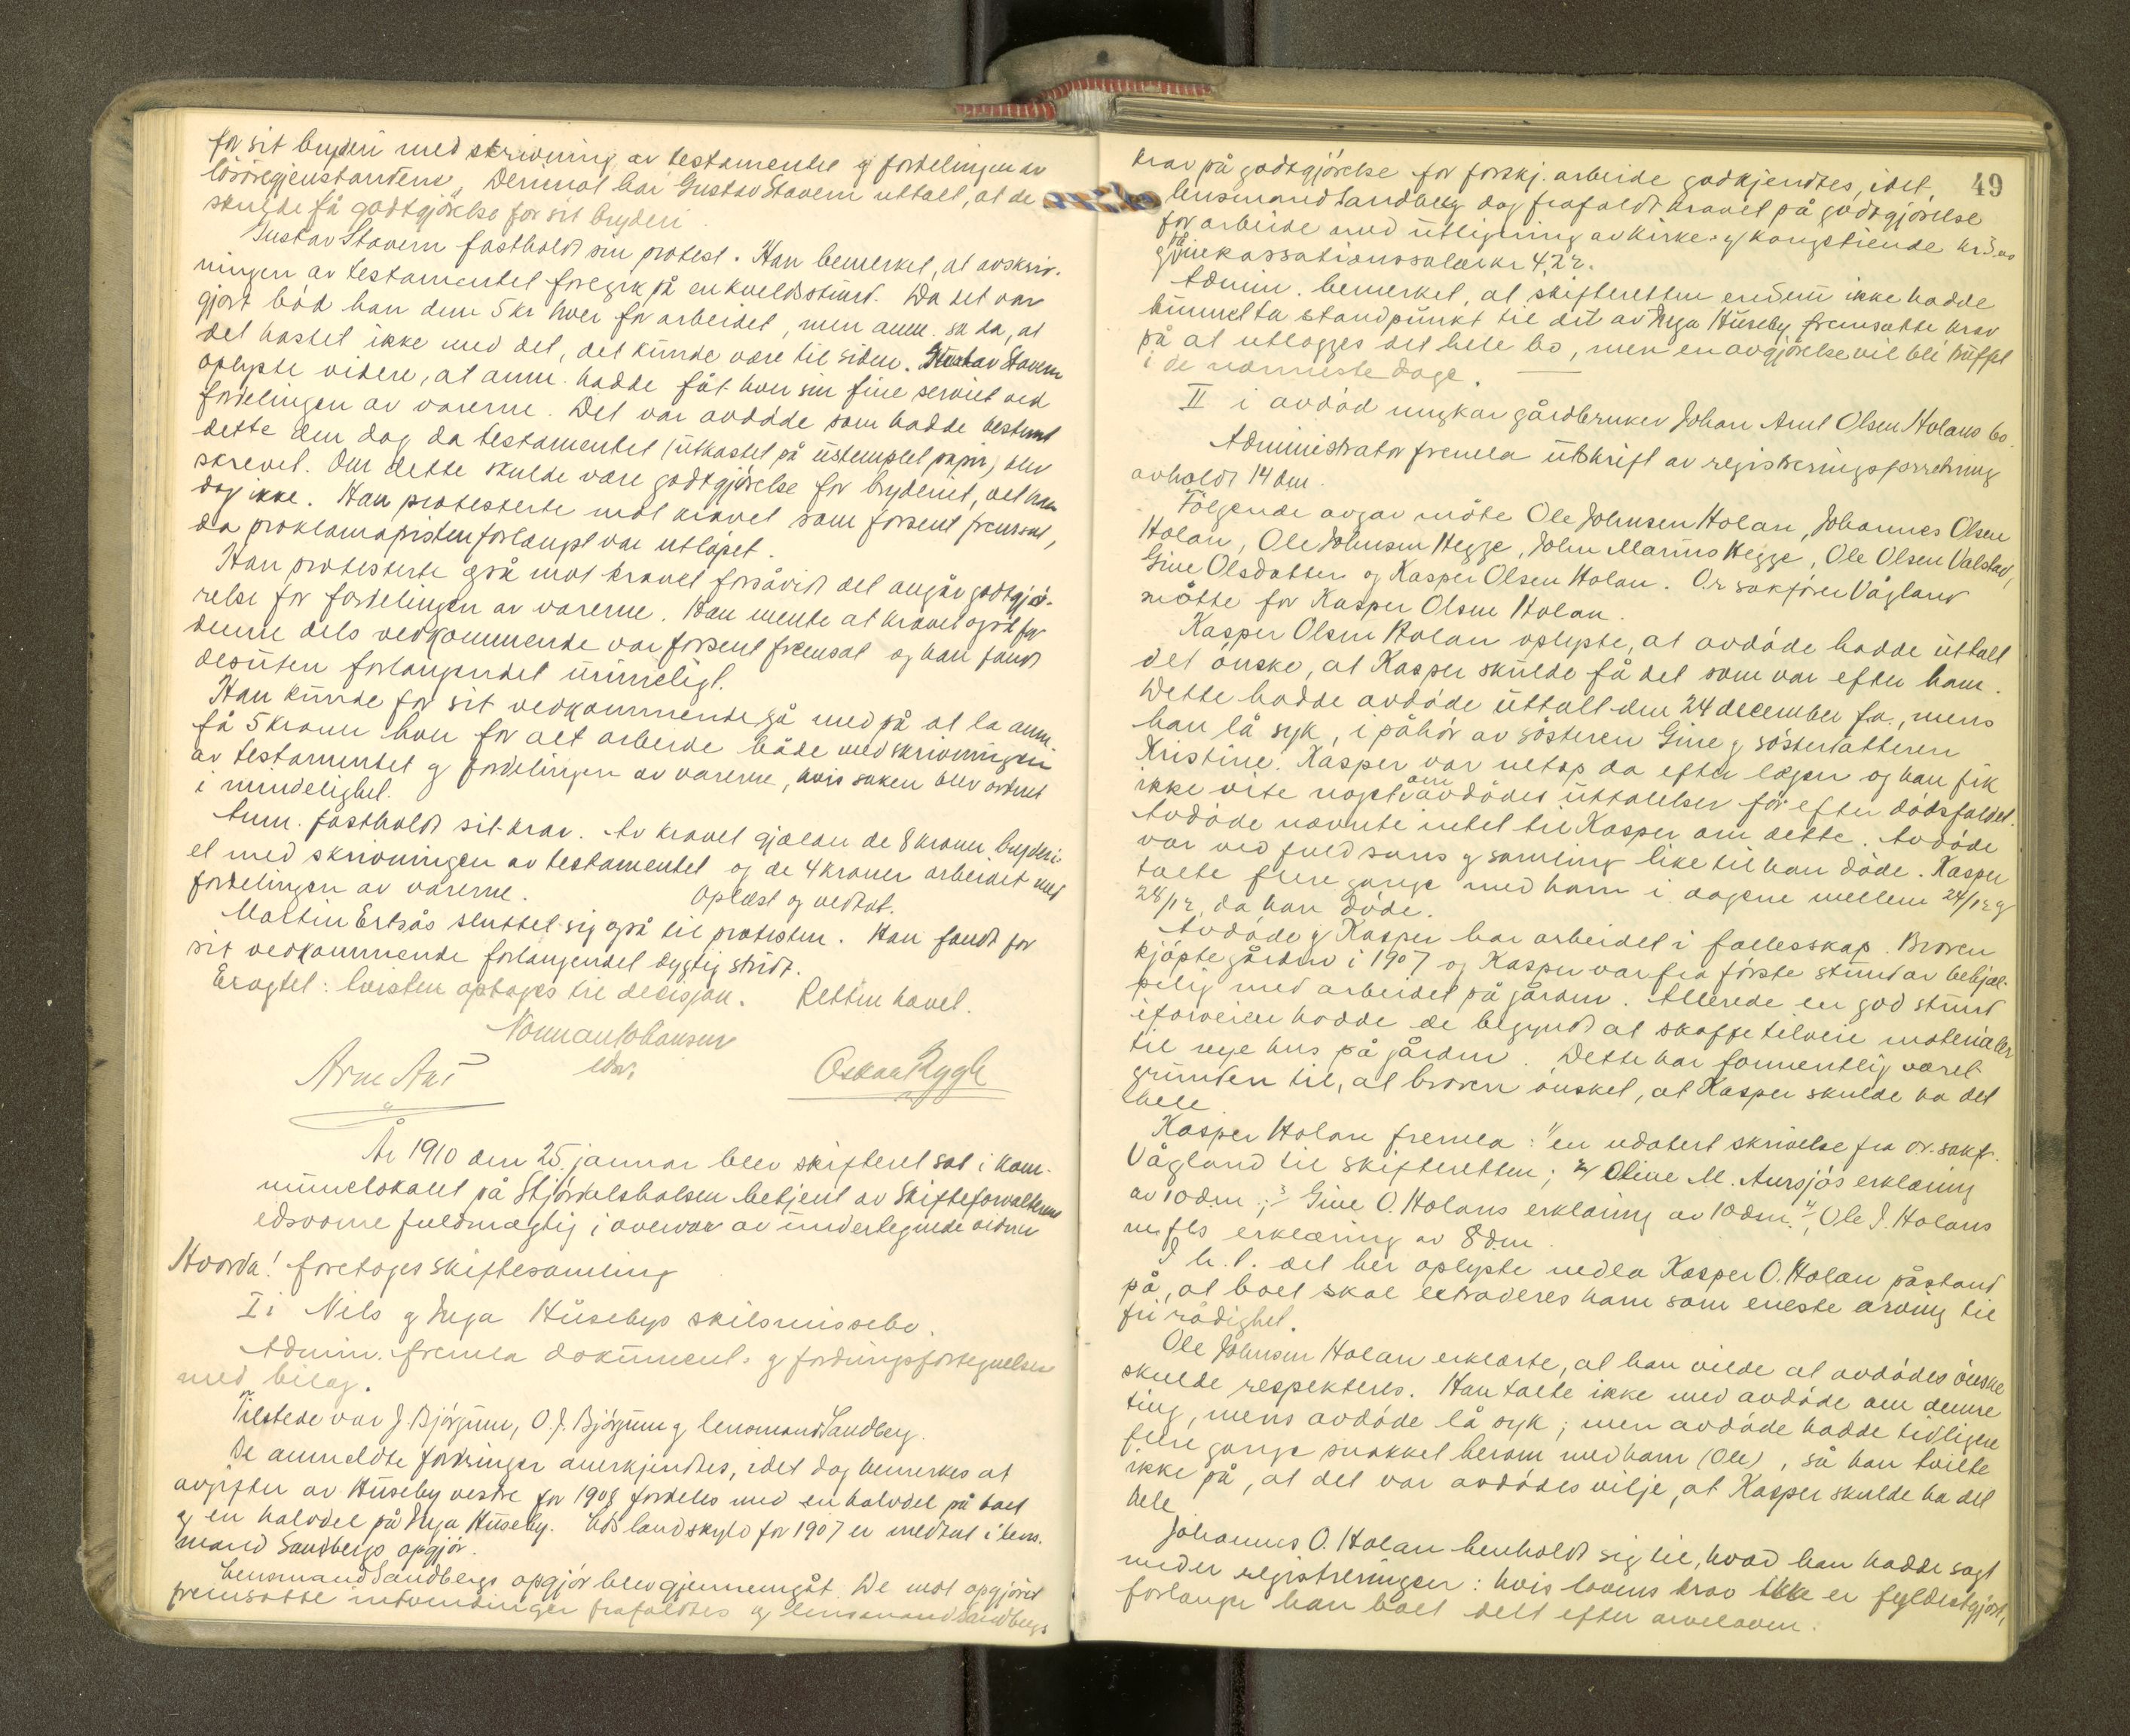 for sit bryderi med skrivning av testamentet og fordelingen av
lösöregjenstandene. Derimot har Gustav Stavern uttalt, at de
skulde få godtgjörelse for sit bryderi
Gustav Stavern fastholdt sin protest. Han bemerket, at avskriv-
ningen av testamentet foregik på en kveldsstund. Da det var
gjort böd han dem 5 kr hver for arbeidet, men anm. sa da, at
det hastet ikke med det, det kunde være til siden. Gustav Stavern
oplyste videre, at anm. hadde fåt hver sin fine serviet ved
fordelingen av varerne. Det var avdöde som hadde bestemt
dette den dag da testamentet (utkastet på ustemplet papir) blev
skrevet. Om dette skulde være godtgjörelse for bryderiet, vet han
dog ikke. Han protesterte mot kravet som forsent fremsat,
da proklamafristen forlængst var utlöpet.
Han protesterte også mot kravet forsåvidt det angår godtgjö-
relse for fordelingen av varerne. Han mente at kravet også for
denne dels vedkommende var forsent fremsat og han fandt
desuten forlangendet urimeligt.
Han kunde for sit vedkommende gå med på at la anm.
få 5 kroner hver for alt arbeide både med skrivningen
av testamentet og fordelingen av varerne, hvis saken blev ordnet
i mindelighet.
Anm. fastholdt sit krav. Av kravet gjælder de 8 kroner bryderi-
et med skrivningen av testamentet og de 4 kroner arbeidet med
fordelingen av varerne. Oplæst og vedtat.
Martin Ertsås sluttet sig også til protesten. Han fandt for
sit vedkommende forlangendet dygtig stridt.
Eragtet: tvisten optages til decisjon. Retten hævet.
Norman Johansen
edsv.
Arne Aas
Oskar Rygh
År 1910 den 25. januar blev skifteret sat i kom-
munelokalet på Stjördalshalsen betjent av Skifteforvalterens
edsvorne fuldmægtig i overvær av undertegnede vidner
Hvorda! foretoges skiftesamling
I i Nils og Inga Husebys skilsmissebo.
Admin. fremla dokument- og fordringsfortegnelsen
med bilag.
Tilstede var J. Björgum, O. J. Björgum og lensmand Sandberg.
De anmeldte fordringer anerkjendtes, idet dog bemerkes at
avgifter av Huseby vestre for 1908 fordeles med en halvdel på boet
og en halvdel på Inga Huseby. landskyld for 1907 er medtat i lens-
mand Sandbergs opgjör.
Lensmand Sandbergs opgjör blev gjennemgåt. De mot opgjöret
fremsatte indvendinger frafaldtes og lensmand Sandbergs
49
krav på godtgjörelse for forskj. arbeide godkjendtes, idet
lensmand Sandberg dog frafaldt kravet på godtgjörelse
for arbeide med utligning av kirke- og kongetiende kr 3.00
og på inkassationssalær kr 4,22.
Admin. bemerket, at skifteretten endnu ikke hadde
kunnet ta standpunkt til det av Inga Huseby fremsatte krav
på at utlægges det hele bo, men en avgjörelse vil bli truffet
i de nærmeste dage.
II i avdöd ungkar gårdbruker Johan Arnt Olsen Holans bo.
Administrator fremla utskrift av registreringsforretning
avholdt 14 dm.
Fölgende avgav möte Ole Johnsen Holan, Johannes Olsen
Holan, Ole Johnsen Hegge, John Marius Hegge, Ole Olsen Valstad,
Gine Olsdatter og Kasper Olsen Holan. O.r sakförer Vågland
mötte for Kasper Olsen Holan.
Kasper Olsen Holan oplyste, at avdöde hadde uttalt
det önske, at Kasper skulde få det som var efter ham.
Dette hadde avdöde uttalt den 24 december f.a., mens
han lå syk, i påhör av sösteren Gine og sösterdatteren
Kristine. Kasper var netop da efter lægen og han fik
ikke vite noget om avdödes uttalelser för efter dödsfaldet.
Avdöde nævnte intet til Kasper om dette. Avdöde
var ved fuld sans og samling like til han döde. Kasper
talte flere gange med ham i dagene mellem 24/12 og
28/12, da han döde.
Avdöde og Kasper har arbeidet i fællesskap. Broren
kjöpte gården i 1907 og Kasper var fra förste stund av behjæl-
pelig med arbeidet på gården. Allerede en god stund
iforveien hadde de begyndt at skaffe tilveie materialer
til nye hus på gården. Dette har formentlig været
grunden til, at broren önsket, at Kasper skulde ha det
hele
Kasper Holan fremla: 1/ en udatert skrivelse fra or. sakf.
Vågland til skifteretten; 2/ Oline M. Aursjös erklæring
av 10 dm.; 3/ Gine O. Holans erklæring av 10 dm. 4/ Ole J. Holans
m. fls erklæring av 8 dm.
I h. t. det her oplyste nedla Kasper O. Holan påstand
på, at boet skal extraderes ham som eneste arving til
fri rådighet.
Ole Johnsen Holan erklærte, at han vilde at avdödes önske
skulde respekteres. Han talte ikke med avdöde om denne
ting, mens avdöde lå syk; men avdöde hadde tidligere
flere gange snakket herom med ham (Ole), så han tvilte
ikke på, at det var avdödes vilje, at Kasper skulde ha det
hele
Johannes O. Holan henholdt sig til, hvad han hadde sagt
under registreringen: hvis lovens krav ikke er fyldestgjort,
forlanger han boet delt efter arveloven.